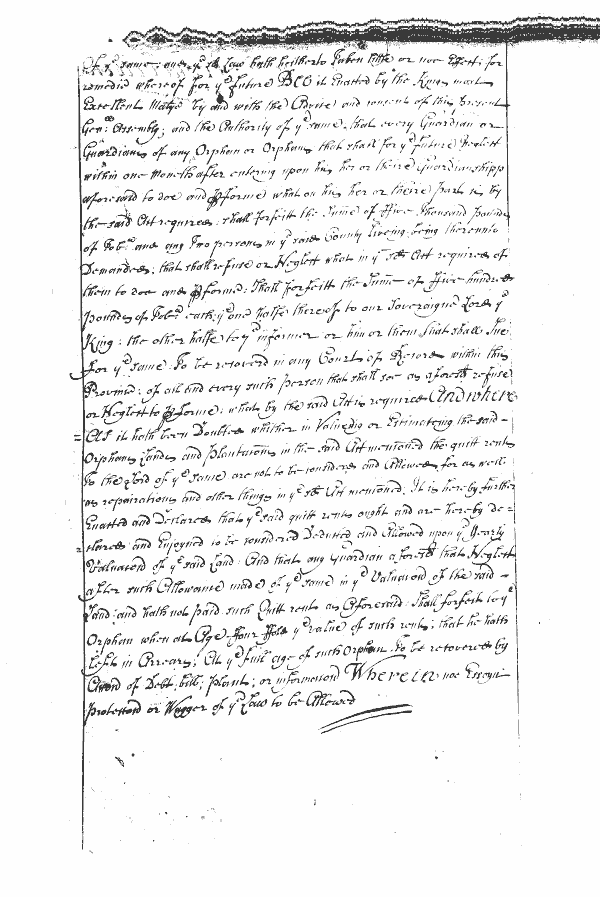 of ye same; and ye sd Law hath hitherto taken little or noe Effect: for
remedie whereof for ye future Bee it Enacted by the Kings most
Excellent Matye by and with the Advice and consent of this present
Genll Assembly; and the Authority of ye same, that every Guardian or
Guardians of any Orphan or Orphans that shall for ye future Neglect
within one Moneth after entering upon his her or theire Guardianshipp
aforesaid to doe and pforme what on his her or theire parts is by
the said Act required; shall forfeitt the Sume of ffive thousand pounds
of Tobo and any Two persons in ye said County liveing being thereunto
Demanded; that shall refuse or Neglect what in ye sd Act required of
them to doe and pformed; Shall forfeitt the Sume of ffive hundred
pounds of Tobo each; ye one halfe thereof to our Soveraigne Lord ye
King: the other halfe to ye informer or him or them that shall Sue
for ye same. To be recoverd in any Court of Record within this
Province; of all and every such person that shall soe as aforesd refuse
or Neglect to pforme; what by the said Act is required And where
As it hath been Doubted whither in Valueing or Estimateing the said -
Orphans Lands and Plantations in the said Act mentioned the quitt rents
To the Lord of ye same are not to be considered and Allowed for as well
as reparations and other things in ye sd Act mentioned; It is hereby further
Enacted and Declared that ye said quitt rents ought and are hereby de=
clared and Enjoyned to be considered Deducted and Allowed upon ye Yearly
Valuacon of ye said Land: And that any Guardian aforesd that Neglect
after such Allowance made of ye same in ye Valuacon of the said -
Land; and hath not paid such Quitt rents as Aforesaid: Shall forfeit to ye
Orphan when at Age ffour ffold ye value of such rents; that he hath
left in Arrears; At ye full age of such Orphan To be recovered by
Accon of Debt, bill; plaint; or informacon Wherein noe Essoyn
protection or Wager of ye Law to be Allowed